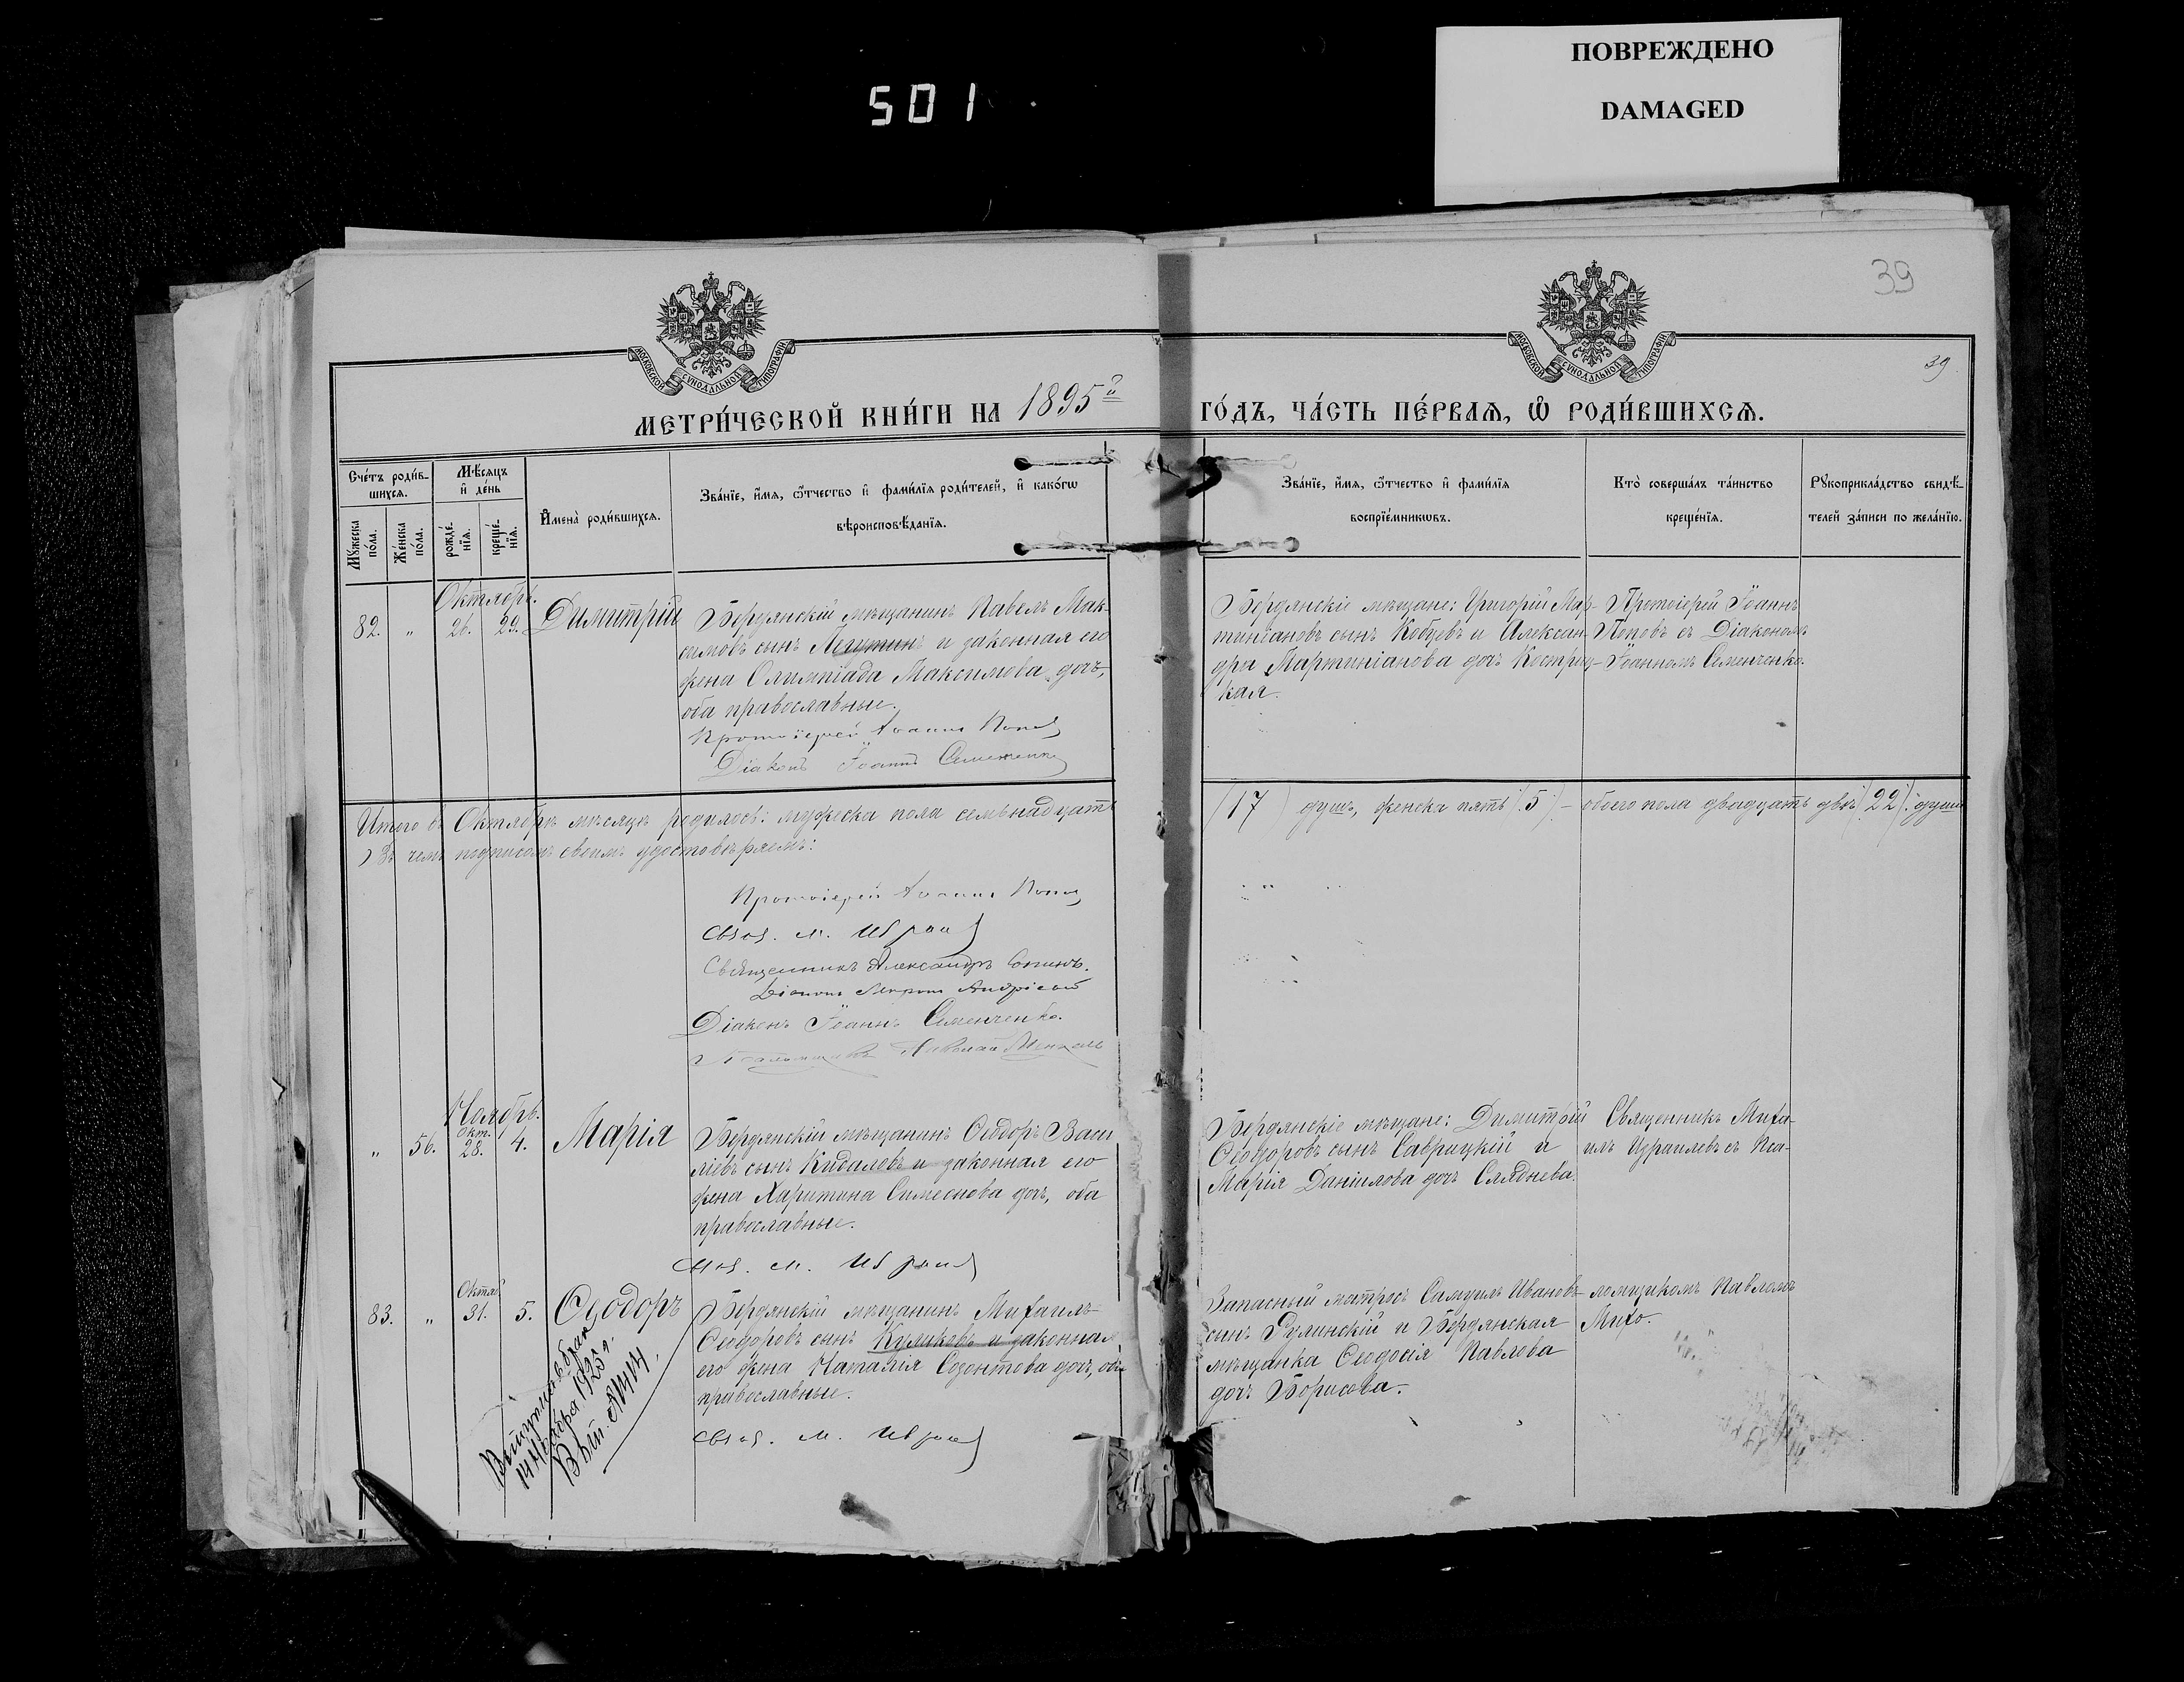 ПОВРЕЖДЕНО
DAMAGED
501
39
МОСКОВСКОЙ СѴНОДАЛЬНОЙ ТИПОГРАФІИ
МОСКОВСКОЙ СѴНОДАЛЬНОЙ ТИПОГРАФІИ
39
МЕТРИ́ЧЕСКОЙ КНИ́ГИ НА 1895й ГО́ДЪ, ЧА́СТЬ ПЕ́РВАѦ, Ѽ РОДИ́ВШИХСѦ.
Сче́тъ роди́в-
шихсѧ.
Мѣ́сѧцъ
и҆ де́нь
Мꙋ́жеска
по́ла.
Же́нска
по́ла.
рожде́-
нїѧ.
креще́-
нїѧ.
И҆мена̀ роди́вшихсѧ.
Зва́нїе, и҆́мѧ, ѻ҆́тчество и҆ фами́лїѧ роди́телей, и҆ како́гѡ
вѣроисповѣ́данїѧ.
Зва́нїе, и҆́мѧ, ѻ҆́тчество и҆ фами́лїѧ
воспрїе́мникѡвъ.
Кто̀ соверша́лъ та́инство
креще́нїѧ.
Рꙋкоприкла́дство свидѣ́-
телей за́писи по жела́нїю.
Октябрь.
82. " 26. 29. Димитрій
Бердянскій мѣщанинъ Павелъ Мак-
симовъ сынъ и законная его
жена Олимпіада Максимова дочь,
оба православные.
Протоіерей Іоаннъ Поповъ
Діаконъ Іоаннъ Семенченко
Бердянскіе мѣщане: Григорій Мар-
тиніановъ сынъ Кобзевъ и Алексан-
дра Мартиніанова дочь Кострец-
кая.
Протоіерей Іоаннъ
Поповъ съ Діакономъ
Іоанномъ Семенченко.
Итого въ Октябрѣ мѣсяцѣ родилось: мужеска пола семьнадцать (17) душъ, женска пять (5) – обоего пола двадцать двѣ (22) души
Въ чемъ подписомъ своимъ удостовѣряемъ:
Протоіерей Іоаннъ Поповъ
Свящ. М. Израил
Священникъ Александръ
Діаконъ
Діаконъ Іоаннъ Семенченко.
Псаломщикъ Николай
Ноябрь.
" 56. Окт. 28. 4. Марія
Бердянскій мѣщанинъ Ѳеодоръ Васи-
ліевъ сынъ Кидаловъ и законная его
жена Харитина Симеонова дочь, оба
православные.
Свящ. М. Израил
Бердянскіе мѣщане: Димитрій
Ѳеодоровъ сынъ Саврицкій и
Марія Даніилова дочь Сляднева.
Священникъ Миха-
илъ Израилевъ съ Пса-
83. " Октяб. 31. 5. Ѳеодоръ
Бердянскій мѣщанинъ Михаилъ
Ѳеодоровъ сынъ Куликовъ и законная
его жена Наталія Созонтова дочь, оба
православные.
Свящ. М. Израил
Запасный матросъ Самуилъ Ивановъ
сынъ Рулинскій и Бердянская
мѣщанка Ѳеодосія Павлова
дочь Борисова.
ломщикомъ Павломъ
Михо.
Вступилъ въ бракъ
14 Ноября 1925 г.